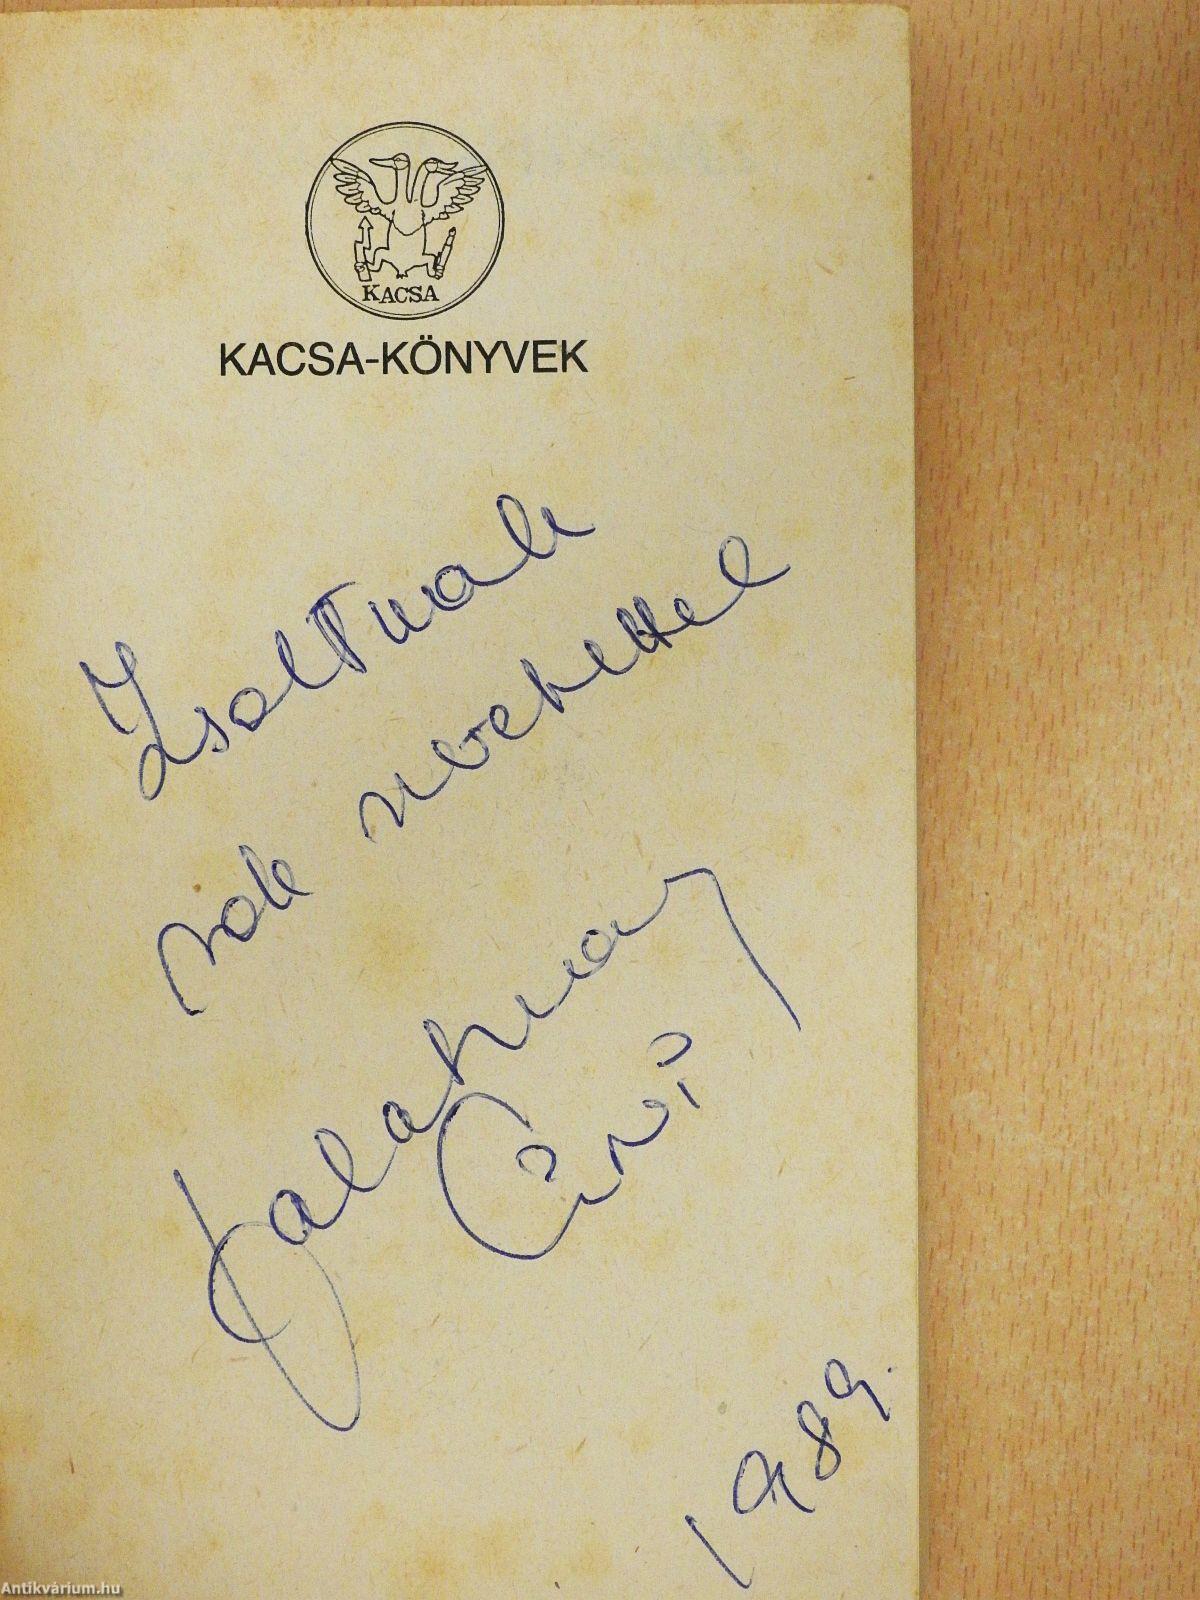 KACSA
KACSA-KÖNYVEK
Zsoltnak
sok szeretettel
Galatnay
1989.
Antikvárium.hu